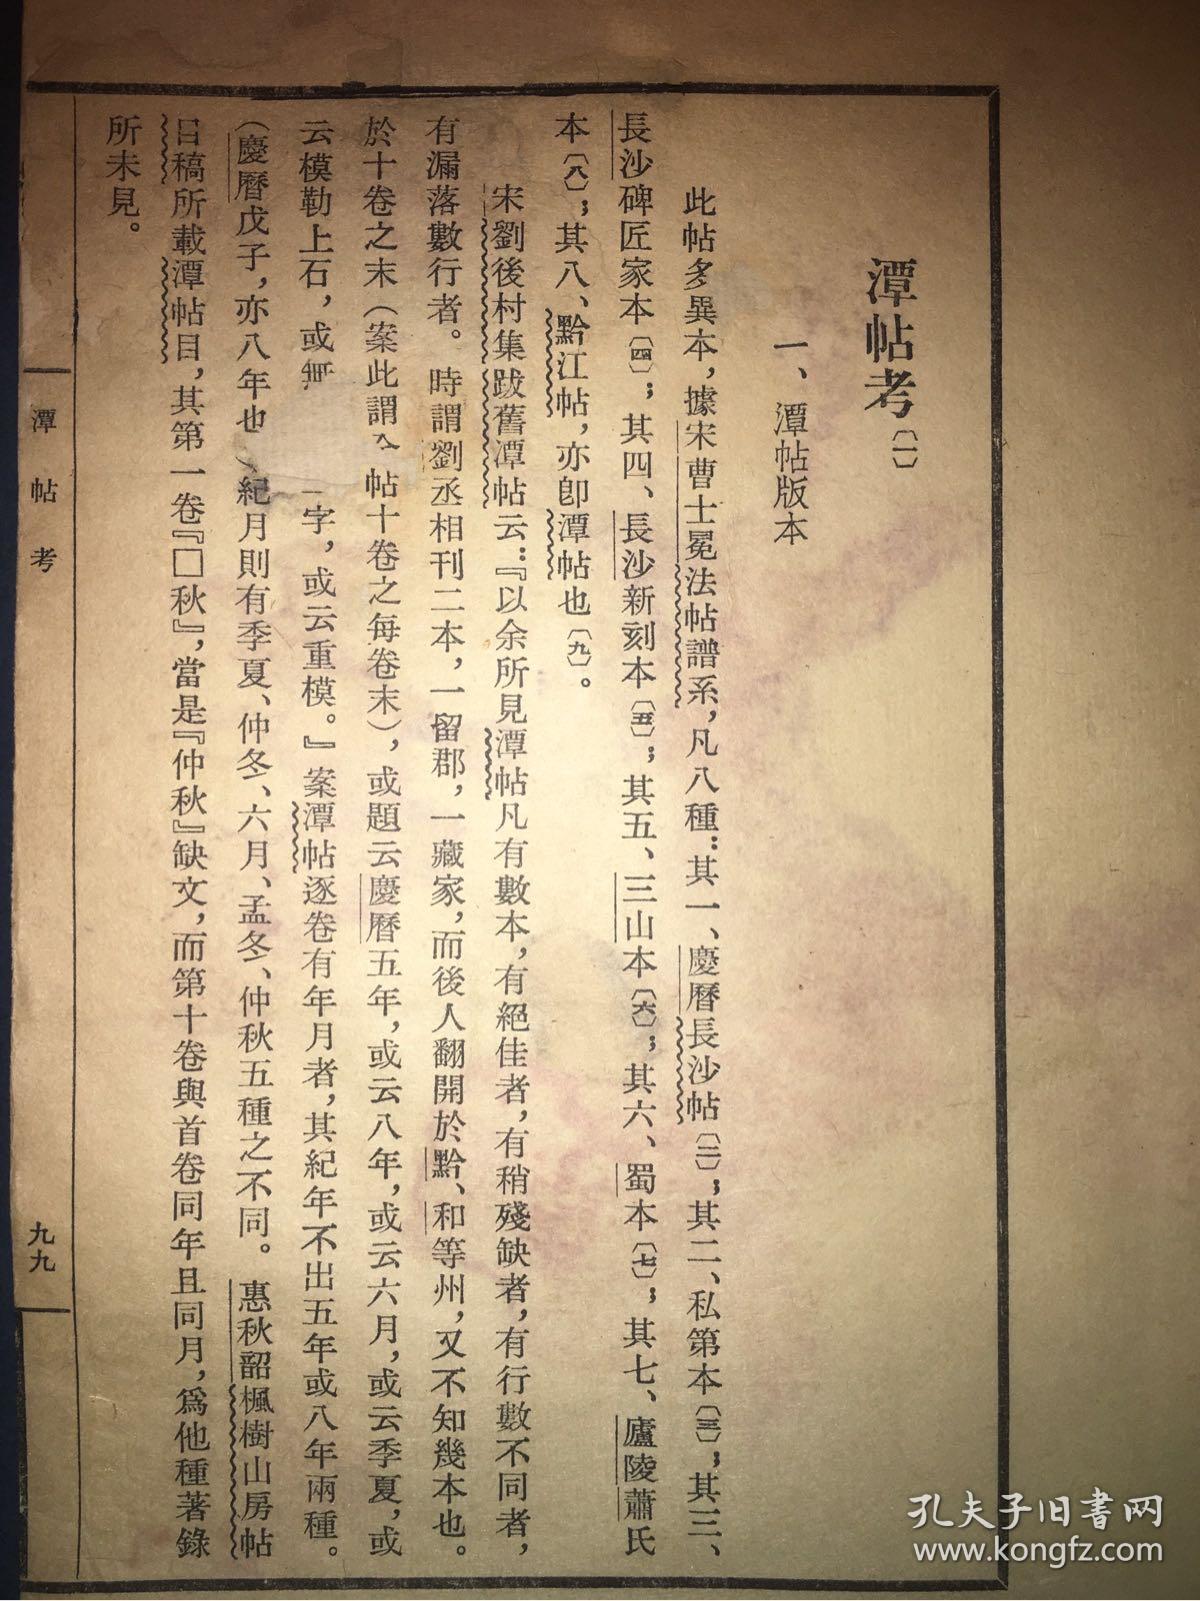 潭帖考〔一〕
一、潭帖版本
此帖多異本，據宋曹士冕法帖譜系，凡八種：其一、慶曆長沙帖〔二〕；其二、私第本〔三〕；其三、
長沙碑匠家本〔四〕；其四、長沙新刻本〔五〕；其五、三山本〔六〕；其六、蜀本〔七〕；其七、廬陵蕭氏
本〔八〕；其八、黔江帖，亦卽潭帖也〔九〕。
宋劉後村集跋舊潭帖云：『以余所見潭帖凡有數本，有絕佳者，有稍殘缺者，有行數不同者，
有漏落數行者。時謂劉丞相刊二本，一留郡，一藏家，而後人翻開於黔、和等州，又不知幾本也。
於十卷之末（案此謂 帖十卷之每卷末），或題云慶曆五年，或云八年，或云六月，或云季夏，或
云模勒上石，或無 一字，或云重模。』案潭帖逐卷有年月者，其紀年不出五年或八年兩種。
（慶曆戊子，亦八年也）紀月則有季夏、仲冬、六月、孟冬、仲秋五種之不同。惠秋韶楓樹山房帖
目稿所載潭帖目，其第一卷『□秋』，當是『仲秋』缺文，而第十卷與首卷同年且同月，爲他種著錄
所未見。
潭帖考
九九
孔夫子旧书网
www.kongfz.com